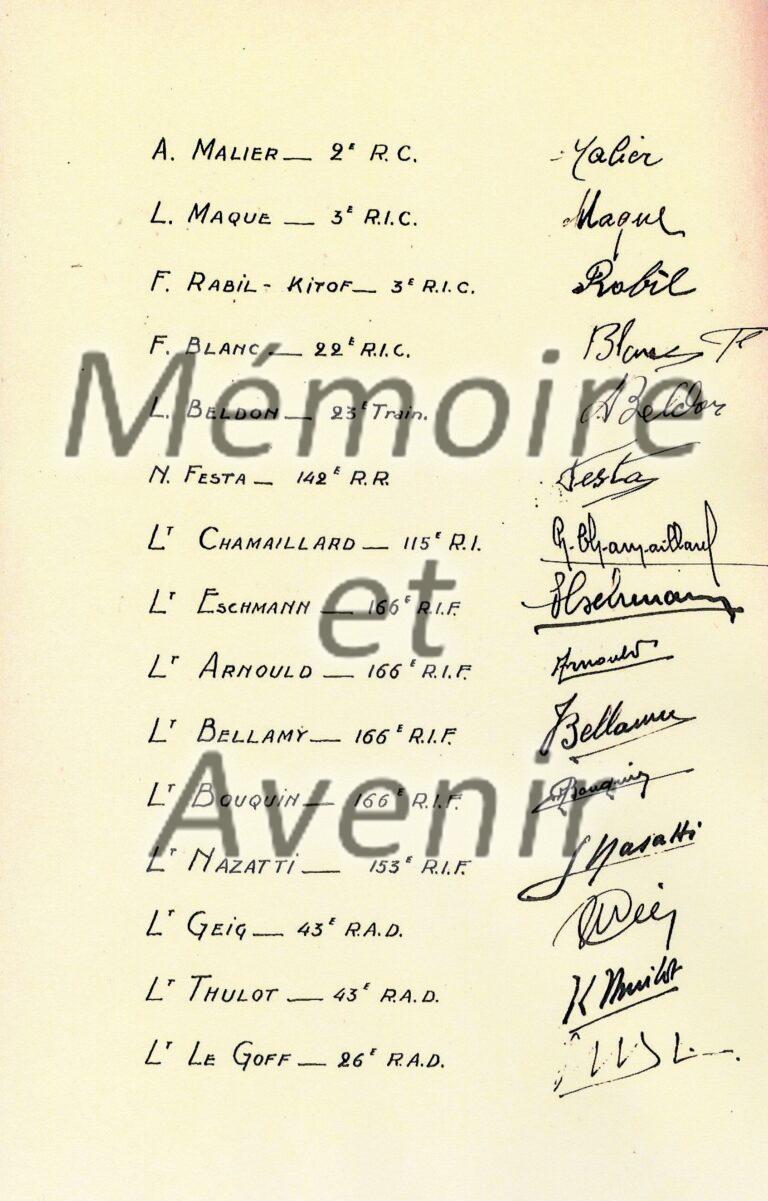 A. MALIER — 2E R.C. Malier
L. MAQUE — 3E R.I.C. Maque
F. RABIL - KITOF — 3E R.I.C. Rabil
F. BLANC — 22E R.I.C. Blanc F
Mémoire
L. BELDON — 23E Train. Beldon
N. FESTA — 142E R.R. Festa
LT CHAMAILLARD — 115E R.I. Chamaillard
et
LT ESCHMANN — 166E R.I.F. Eschmann
LT ARNOULD — 166E R.I.F. Arnould
LT BELLAMY — 166E R.I.F. Bellamy
Avenir
LT BOUQUIN — 166E R.I.F. Bouquin
LT NAZATTI — 153E R.I.F. Nasatti
LT GEIG — 43E R.A.D.
LT THULOT — 43E R.A.D. Thuilot
LT LE GOFF — 26E R.A.D.